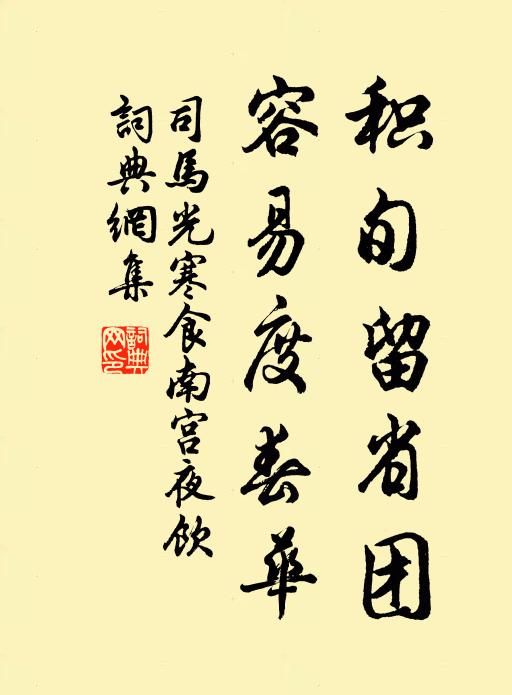 积旬留省团
容易度春華
司馬光寒食南宫夜飲
詞典網集
詞典网印